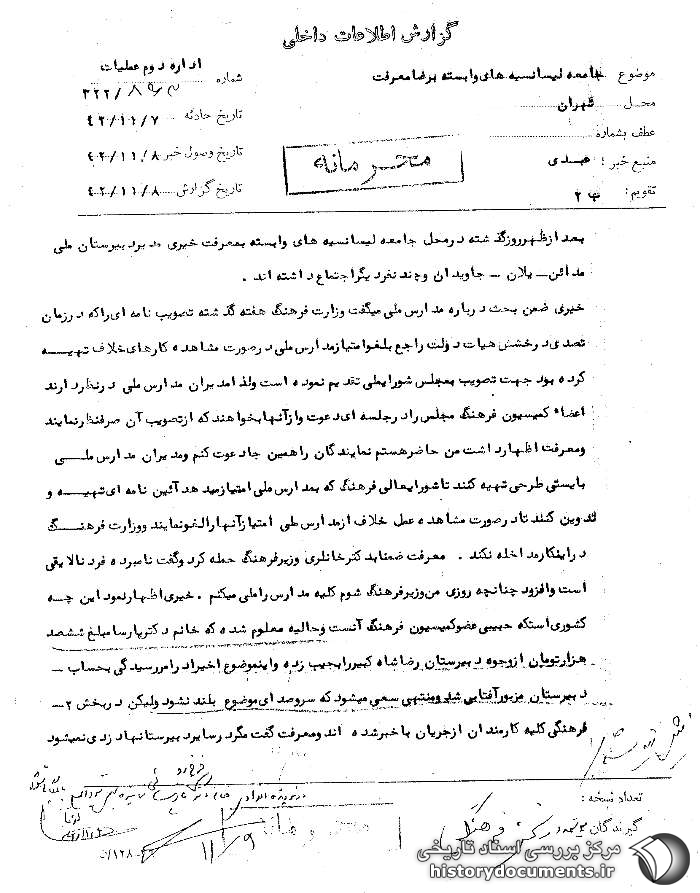 گزارش اطلاعات داخلی
موضوع جامعه لیسانسیه های وابسته برضا معرفت
محل تهران
عطف بشماره
منبع خبر : صدی
تقویم : ب ۲
اداره دوم عملیات
شماره ۳۲۲/
تاریخ حادثه ۴۲/۱۱/۷
تاریخ وصول خبر ۴۲/۱۱/۸
تاریخ گزارش ۴۲/۱۱/۸
محرمانه
بعد از ظهر روز گذشته در محل جامعه لیسانسیه های وابسته بمعرفت خیری مدیر دبیرستان ملی
مدائن ـ یلان ـ جاویدان و چند نفر دیگر اجتماع داشته اند .
خیری ضمن بحث درباره مدارس ملی میگفت وزارت فرهنگ هفته گذشته تصویب نامه ای را که در زمان
تصدی درخشش هیات دولت راجع بلغو امتیاز مدارس ملی در صورت مشاهده کارهای خلاف تهیه
کرده بود جهت تصویب بمجلس شورایملی تقدیم نموده است ولذا مدیران مدارس ملی در نظر دارند
اعضاء کمیسیون فرهنگ مجلس را در جلسه ای دعوت و از آنها بخواهند که از تصویب آن صرفنظر نمایند
و معرفت اظهار داشت من حاضر هستم نمایندگان را همین جا دعوت کنم و مدیران مدارس ملی
بایستی طرحی تهیه کنند تا شورایعالی فرهنگ که بمدارس ملی امتیاز میدهد آئین نامه ای تهیه و
تدوین کنند تا در صورت مشاهده عمل خلاف از مدارس ملی امتیاز آنها را لغو نمایند و وزارت فرهنگ
در اینکار مداخله نکند . معرفت ضمنا بدکتر خانلری وزیر فرهنگ حمله کرد و گفت نامبرده فرد نالایقی
است و افزود چنانچه روزی من وزیر فرهنگ شوم کلیه مدارس را ملی میکنم . خیری اظهار نمود این چه
کشوری استکه حبیبی عضو کمیسیون فرهنگ آنست و حالیه معلوم شده که خانم دکتر پارسا مبلغ ششصد
هزار تومان از وجوه دبیرستان رضا شاه کبیر را بجیب زده و اینموضوع اخیرا در امر رسیدگی بحساب ـ
دبیرستان مزبور آفتابی شده و منتهی سعی میشود که سر و صدای موضوع بلند نشود ولیکن در بخش ۲ ـ
فرهنگی کلیه کارمندان از جریان با خبر شده اند و معرفت گفت مگر در سایر دبیرستانها دزدی نمیشود
تعداد نسخه :
گیرندگان
محرمانه
۱۱/۹
مرکز بررسی اسناد تاریخی
historydocuments.ir